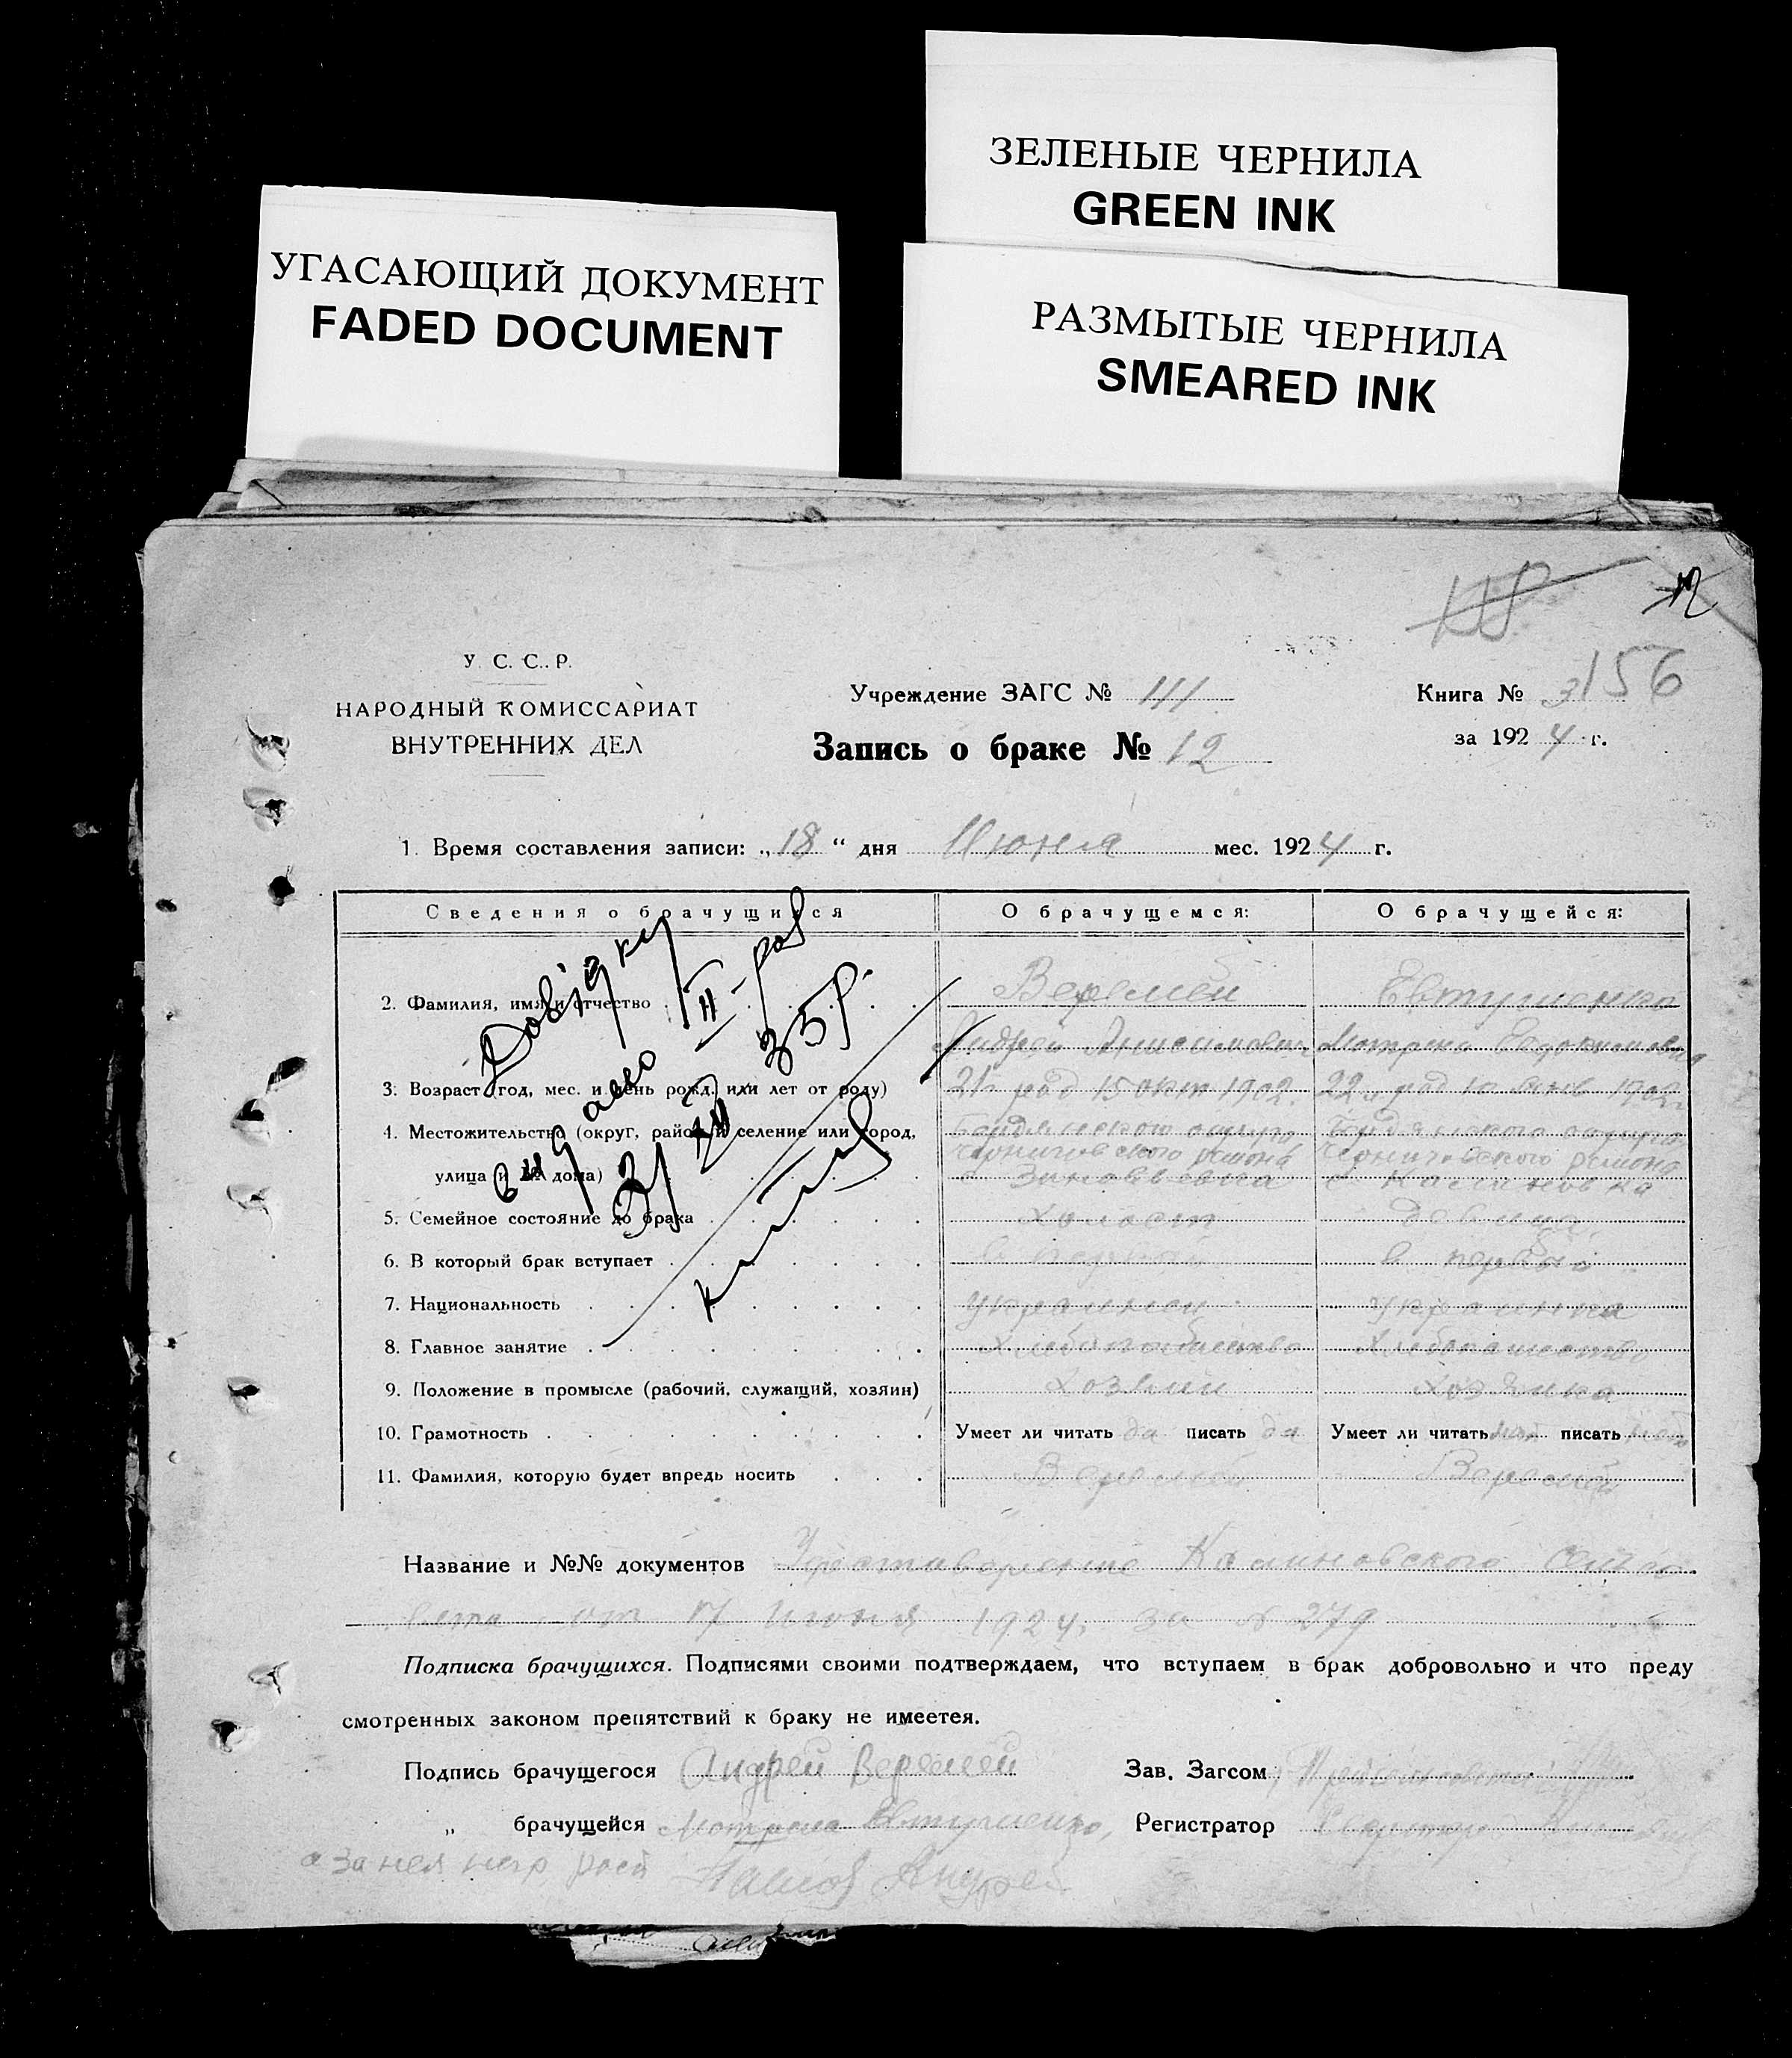 ЗЕЛЕНЫЕ ЧЕРНИЛА
GREEN INK
УГАСАЮЩИЙ ДОКУМЕНТ
FADED DOCUMENT
РАЗМЫТЫЕ ЧЕРНИЛА
SMEARED INK
12
У. С. С. Р.
НАРОДНЫЙ КОМИССАРИАТ
ВНУТРЕННИХ ДЕЛ
Учреждение ЗАГС № 111
Запись о браке № 12
Книга № 3 156
за 1924 г.
1. Время составления записи: „18“ дня Июня мес. 1924 г.
Сведения о брачущихся О брачущемся: О брачущейся:
2. Фамилия, имя и отчество Веремей Евтушенко
Андрей Анисимович Мотрена Евдокимовна
3. Возраст (год, мес. и день рожд. или лет от роду) 21 г. род 15 окт 1902. 22 г. род 10 янв 1902 г.
4. Местожительство (округ, район и селение или город, Бердянского округа Бердянского округа
Черниговского района Черниговского района
улица и № дома) с Зиновьевка с Калиновка
5. Семейное состояние до брака холост девица
6. В который брак вступает в первый в первый
7. Национальность украинец украинка
8. Главное занятие хлебопашество хлебопашество
9. Положение в промысле (рабочий, служащий, хозяин) хозяин хозяйка
10. Грамотность Умеет ли читать да писать да Умеет ли читать нет писать нет
11. Фамилия, которую будет впредь носить Веремей Веремей
Довідку
видано II-раз
35 р.
Название и №№ документов Удостоверение Калиновского сельсо
вета от 17 июня 1924 г. за № 279
Подписка брачущихся. Подписями своими подтверждаем, что вступаем в брак добровольно и что преду
смотренных законом препятствий к браку не имеетея.
Подпись брачущегося Андрей Веремей Зав. Загсом
„ брачущейся Мотрена Евтушенко, Регистратор Секретарь
а за нея негр. росп Андрей